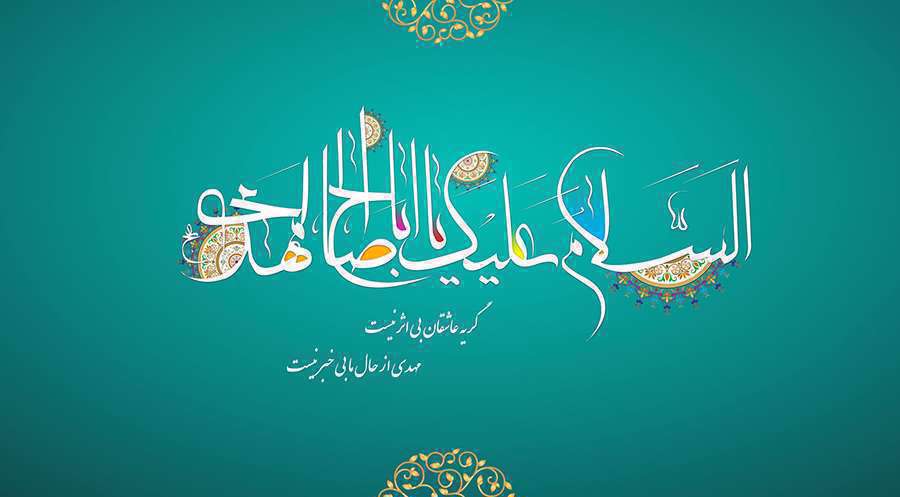 السلام علیک یا اباصالح المهدی
گریه عاشقان بی اثر نیست
مهدی از حال ما بی خبر نیست